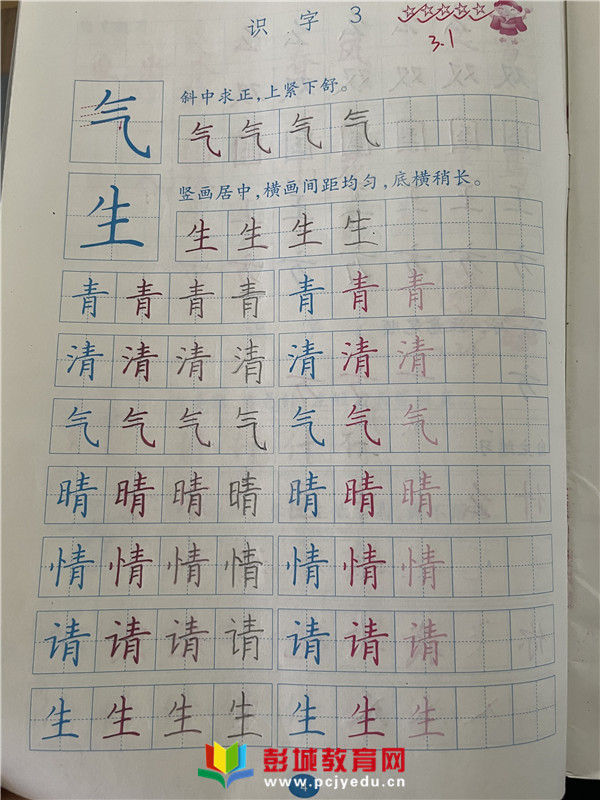 识字3
3.1
气
斜中求正,上紧下舒。
气气气气
生
竖画居中,横画间距均匀,底横稍长。
生生生生
青青青青青青青
清清清清清清清
气气气气气气气
晴晴晴晴晴晴晴
情情情情情情情
请请请请请请请
生生生生生生生
彭城教育网
www.pcjyedu.cn
4